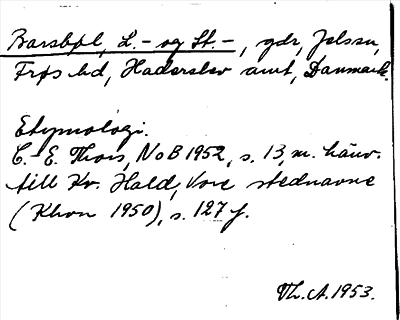 Barsbøl, L.- og St.-, gdr, Jelssn,
Frøs hd, Haderslev amt, Danmark.
Etymologi.
C.-E. Thors, NoB 1952, s. 13, m. hänv.
till Kr. Hald, Vore stednavne
(Khvn 1950), s. 127 f.
Th. A. 1953.